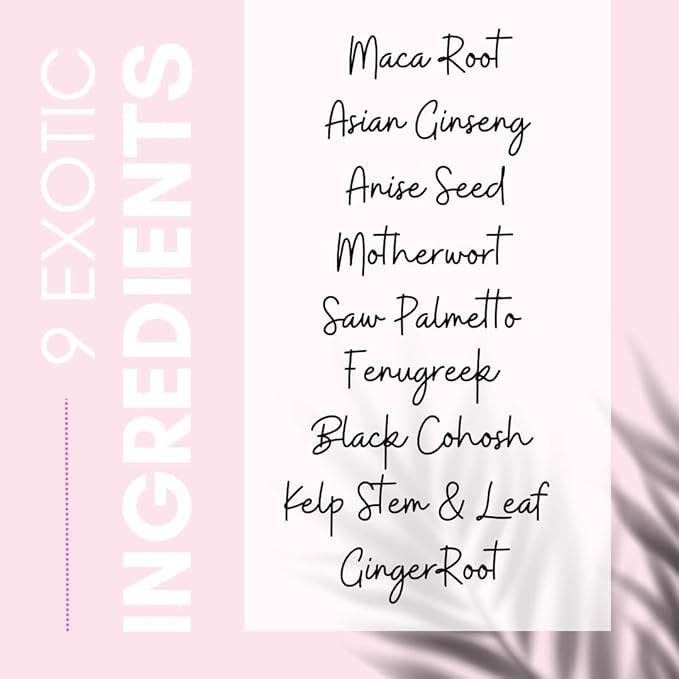 9 EXOTIC
INGREDIENTS
Maca Root
Asian Ginseng
Anise Seed
Motherwort
Saw Palmetto
Fenugreek
Black Cohosh
Kelp Stem & Leaf
GingerRoot